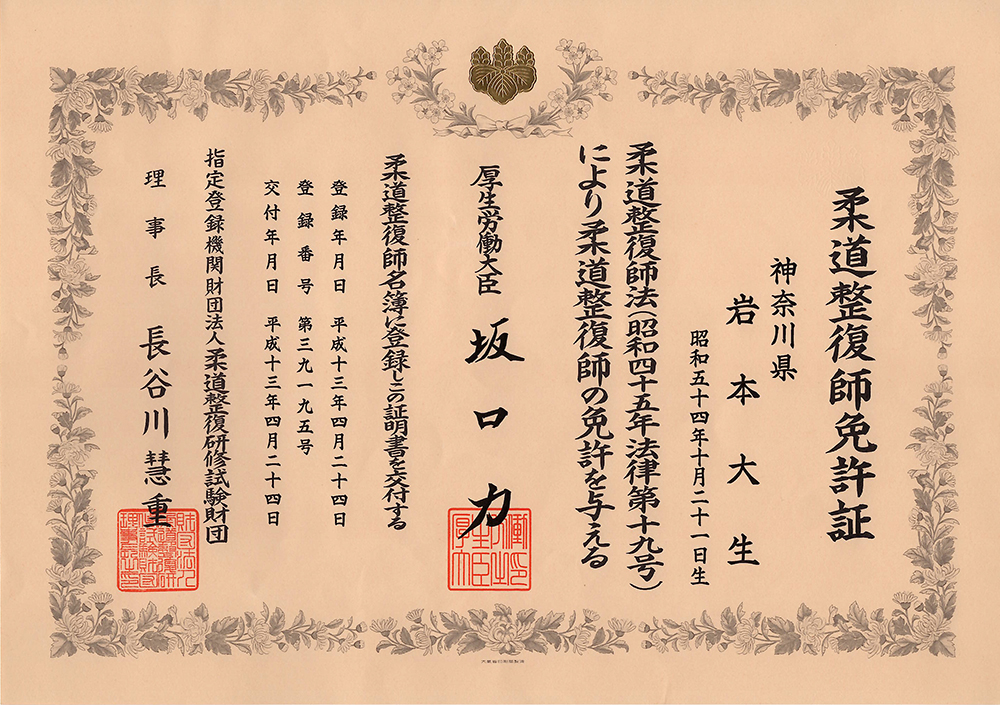 柔道整復師免許証
神奈川県
岩本大生
昭和五十四年十月二十一日生
柔道整復師法(昭和四十五年法律第十九号)
により柔道整復師の免許を与える
厚生労働大臣 坂口力
柔道整復師名簿に登録しこの証明書を交付する
登録年月日 平成十三年四月二十四日
登録番号 第三九一九五号
交付年月日 平成十三年四月二十四日
指定登録機関財団法人柔道整復研修試験財団
理事長 長谷川慧重